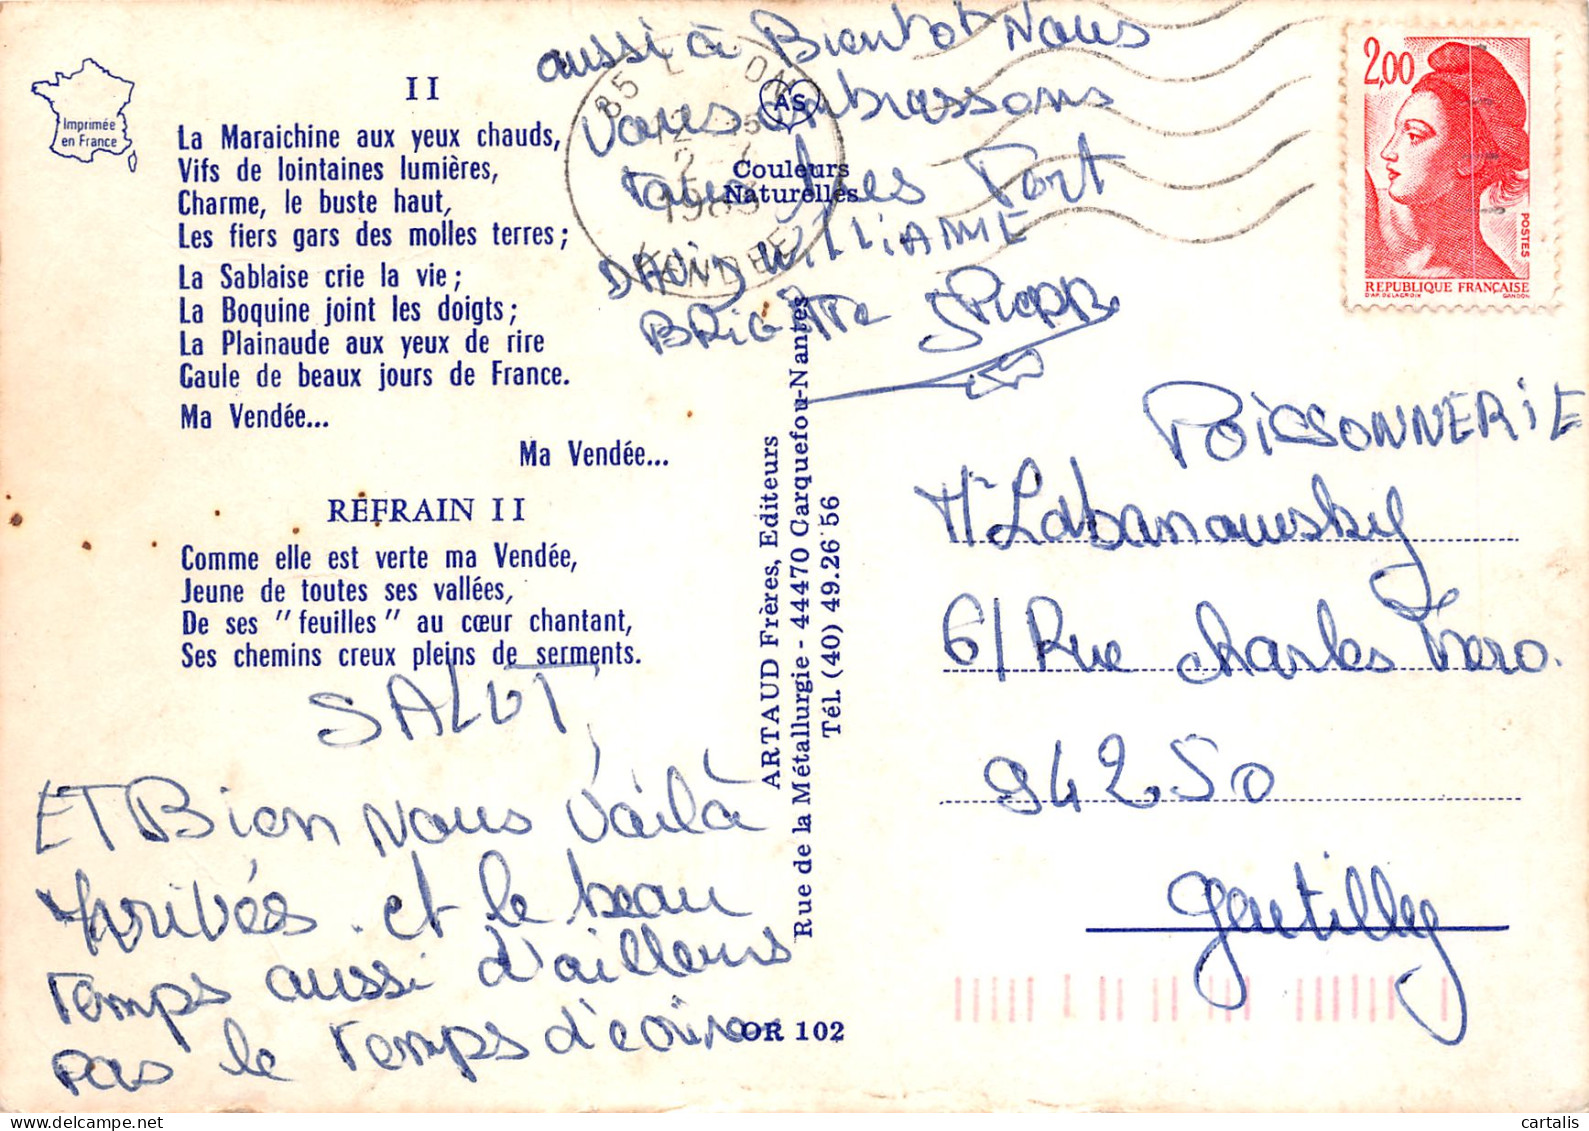 Imprimée
en France
II
La Maraichine aux yeux chauds,
Vifs de lointaines lumières,
Charme, le buste haut,
Les fiers gars des molles terres ;
La Sablaise crie la vie ;
La Boquine joint les doigts ;
La Plainaude aux yeux de rire
Gaule de beaux jours de France.
Ma Vendée...
Ma Vendée...
REFRAIN II
Comme elle est verte ma Vendée,
Jeune de toutes ses vallées,
De ses "feuilles" au cœur chantant,
Ses chemins creux pleins de serments.
SALUT,
ET Bien nous voilà
Arrivés. et le beau
temps aussi d'ailleurs
pas le temps d'écrire
aussi à Bientot Nous
vous embrassons
tous tres Fort
DAVID WILLIAME
BRIGITTE
AS
Couleurs
Naturelles
85
12
2
VENDEE
ARTAUD Frères, Editeurs
Rue de la Métallurgie - 44470 Carquefou-Nantes
Tél. (40) 49.26 56
OR 102
2,00
POSTES
REPUBLIQUE FRANÇAISE
D'AP. DELACROIX GANDON
POISSONNERIE
Mr Labanowsky
6/ Rue Charles Frero.
94250
Gentilly
cartalis